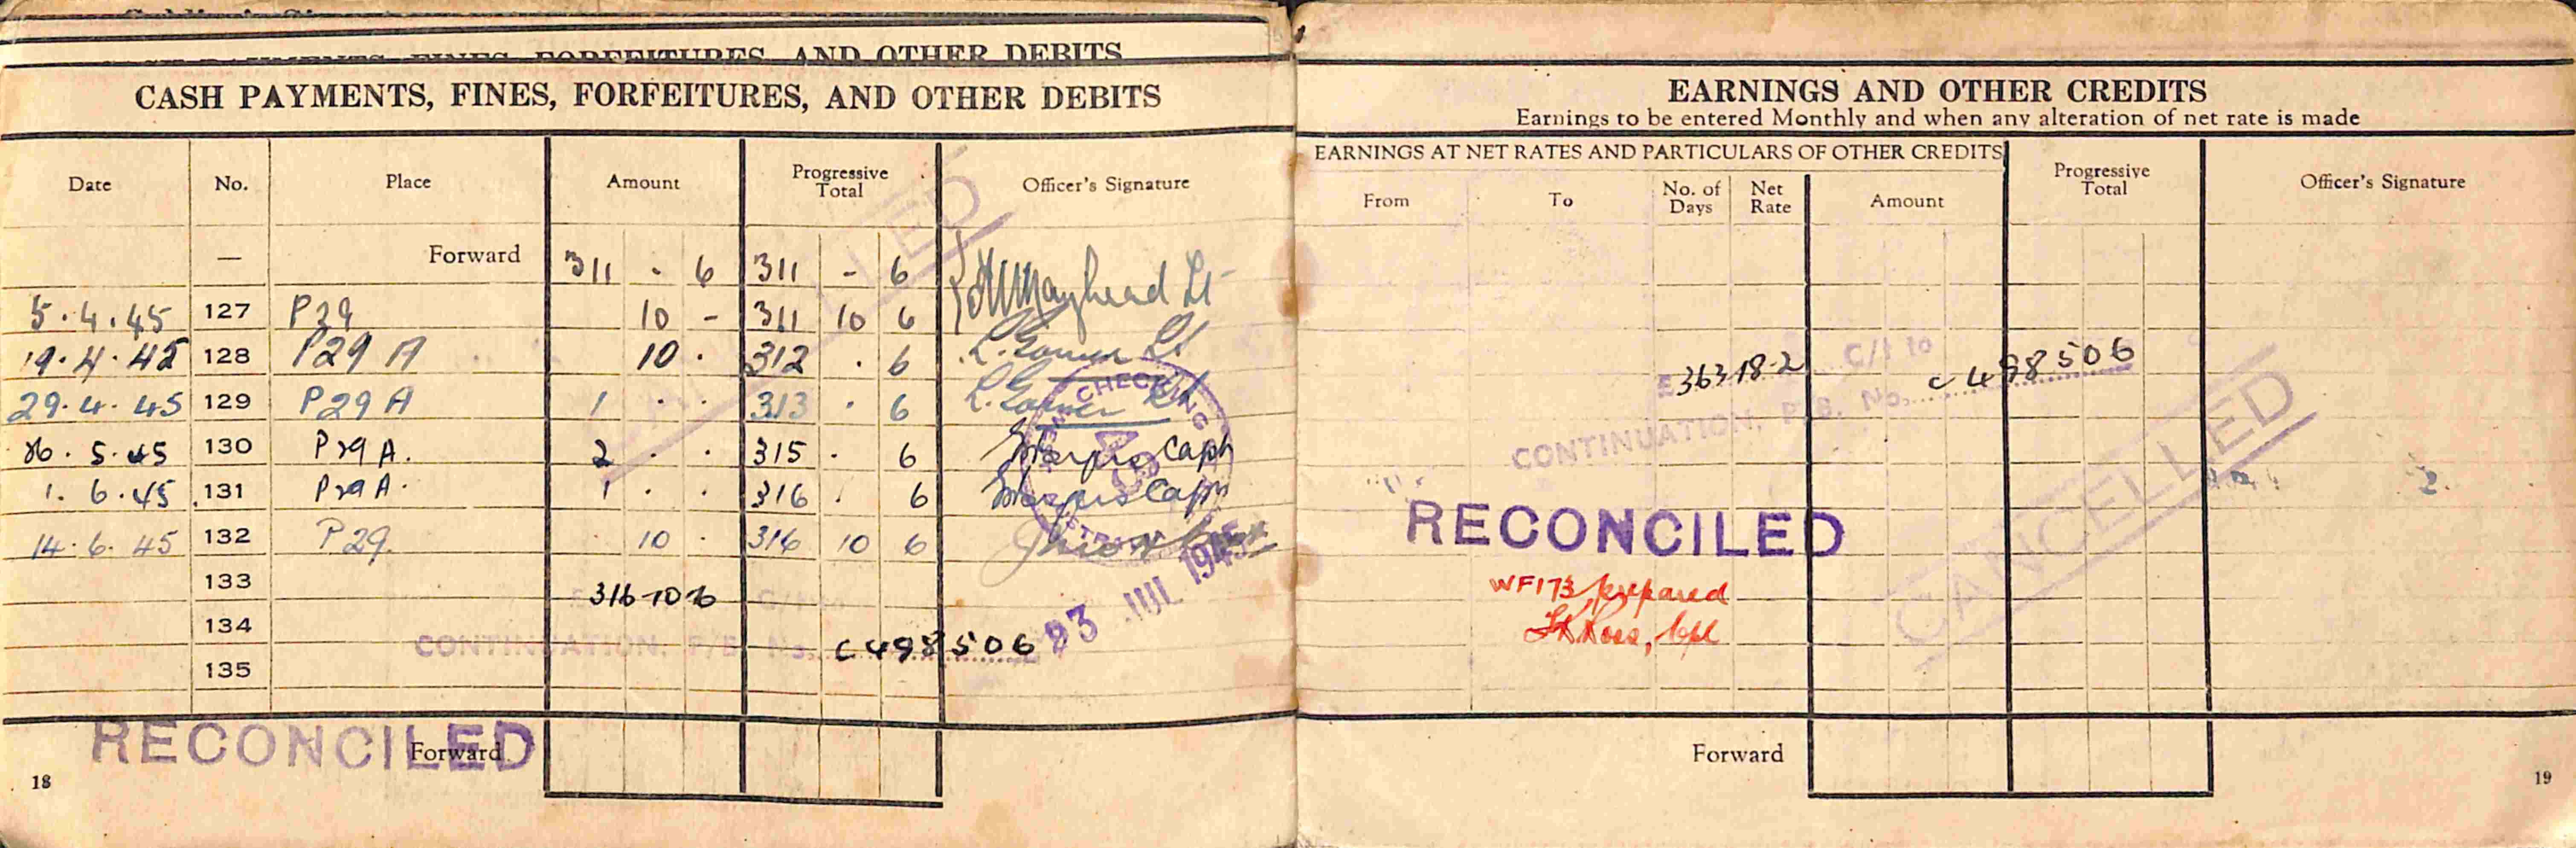 AND OTHER DEBITS
CASH PAYMENTS, FINES, FORFEITURES, AND OTHER DEBITS
Date No. Place Amount Progressive Total Officer's Signature
— Forward 311 - 6 311 - 6
5.4.45 127 P29 10 - 311 10 6 Mayhead Lt
19.4.45 128 P29 A 10 . 312 . 6 Lt
29.4.45 129 P29 A 1 . . 313 . 6 Lt
5.45 130 P29 A. 2 . . 315 . 6 Capt
1.6.45 131 P29 A. 1 . . 316 . 6 Capt
14.6.45 132 P29. 10 . 316 10 6
CHECKING
23 JUL 1945
133 316-10-6
134 CONTINUATION, P/B No. C 498506
135
RECONCILED
Forward
18
EARNINGS AND OTHER CREDITS
Earnings to be entered Monthly and when any alteration of net rate is made
EARNINGS AT NET RATES AND PARTICULARS OF OTHER CREDITS
From To No. of Days Net Rate Amount Progressive Total Officer's Signature
£ 363-18-2 C/f to
CONTINUATION, P/B. No. C 498506
CANCELLED
RECONCILED
WF173 prepared
Ross, Cpl
Forward
19